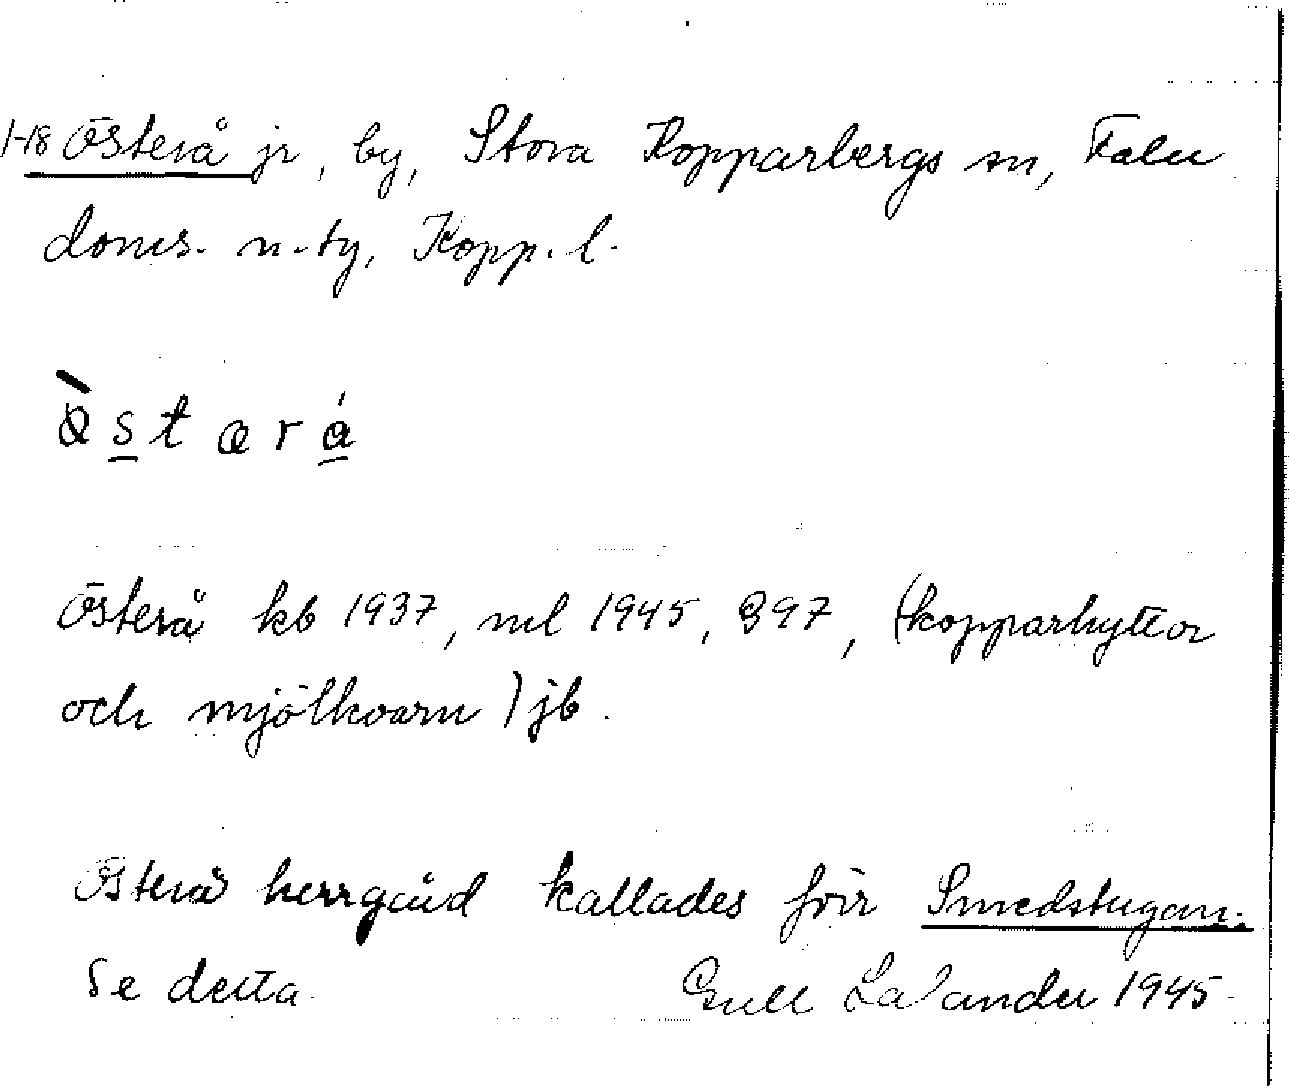 1-18 Österå jr, by, Stora Kopparbergs sn, Falu
doms. n. ty, Kopp. l.
östærå
Österå kb 1937, ml 1945, G97, (kopparhyttor
och mjölkvarn) jb.
Österå herrgård kallades förr Smedstugan.
Se detta. Gull Lalander 1945.